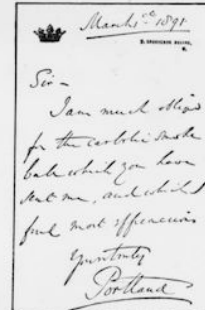 March 1st 1891
Sir –
I am much obliged
for the carbolic smoke
ball which you have
sent me, and which I
find most efficacious
Yours truly
Portland